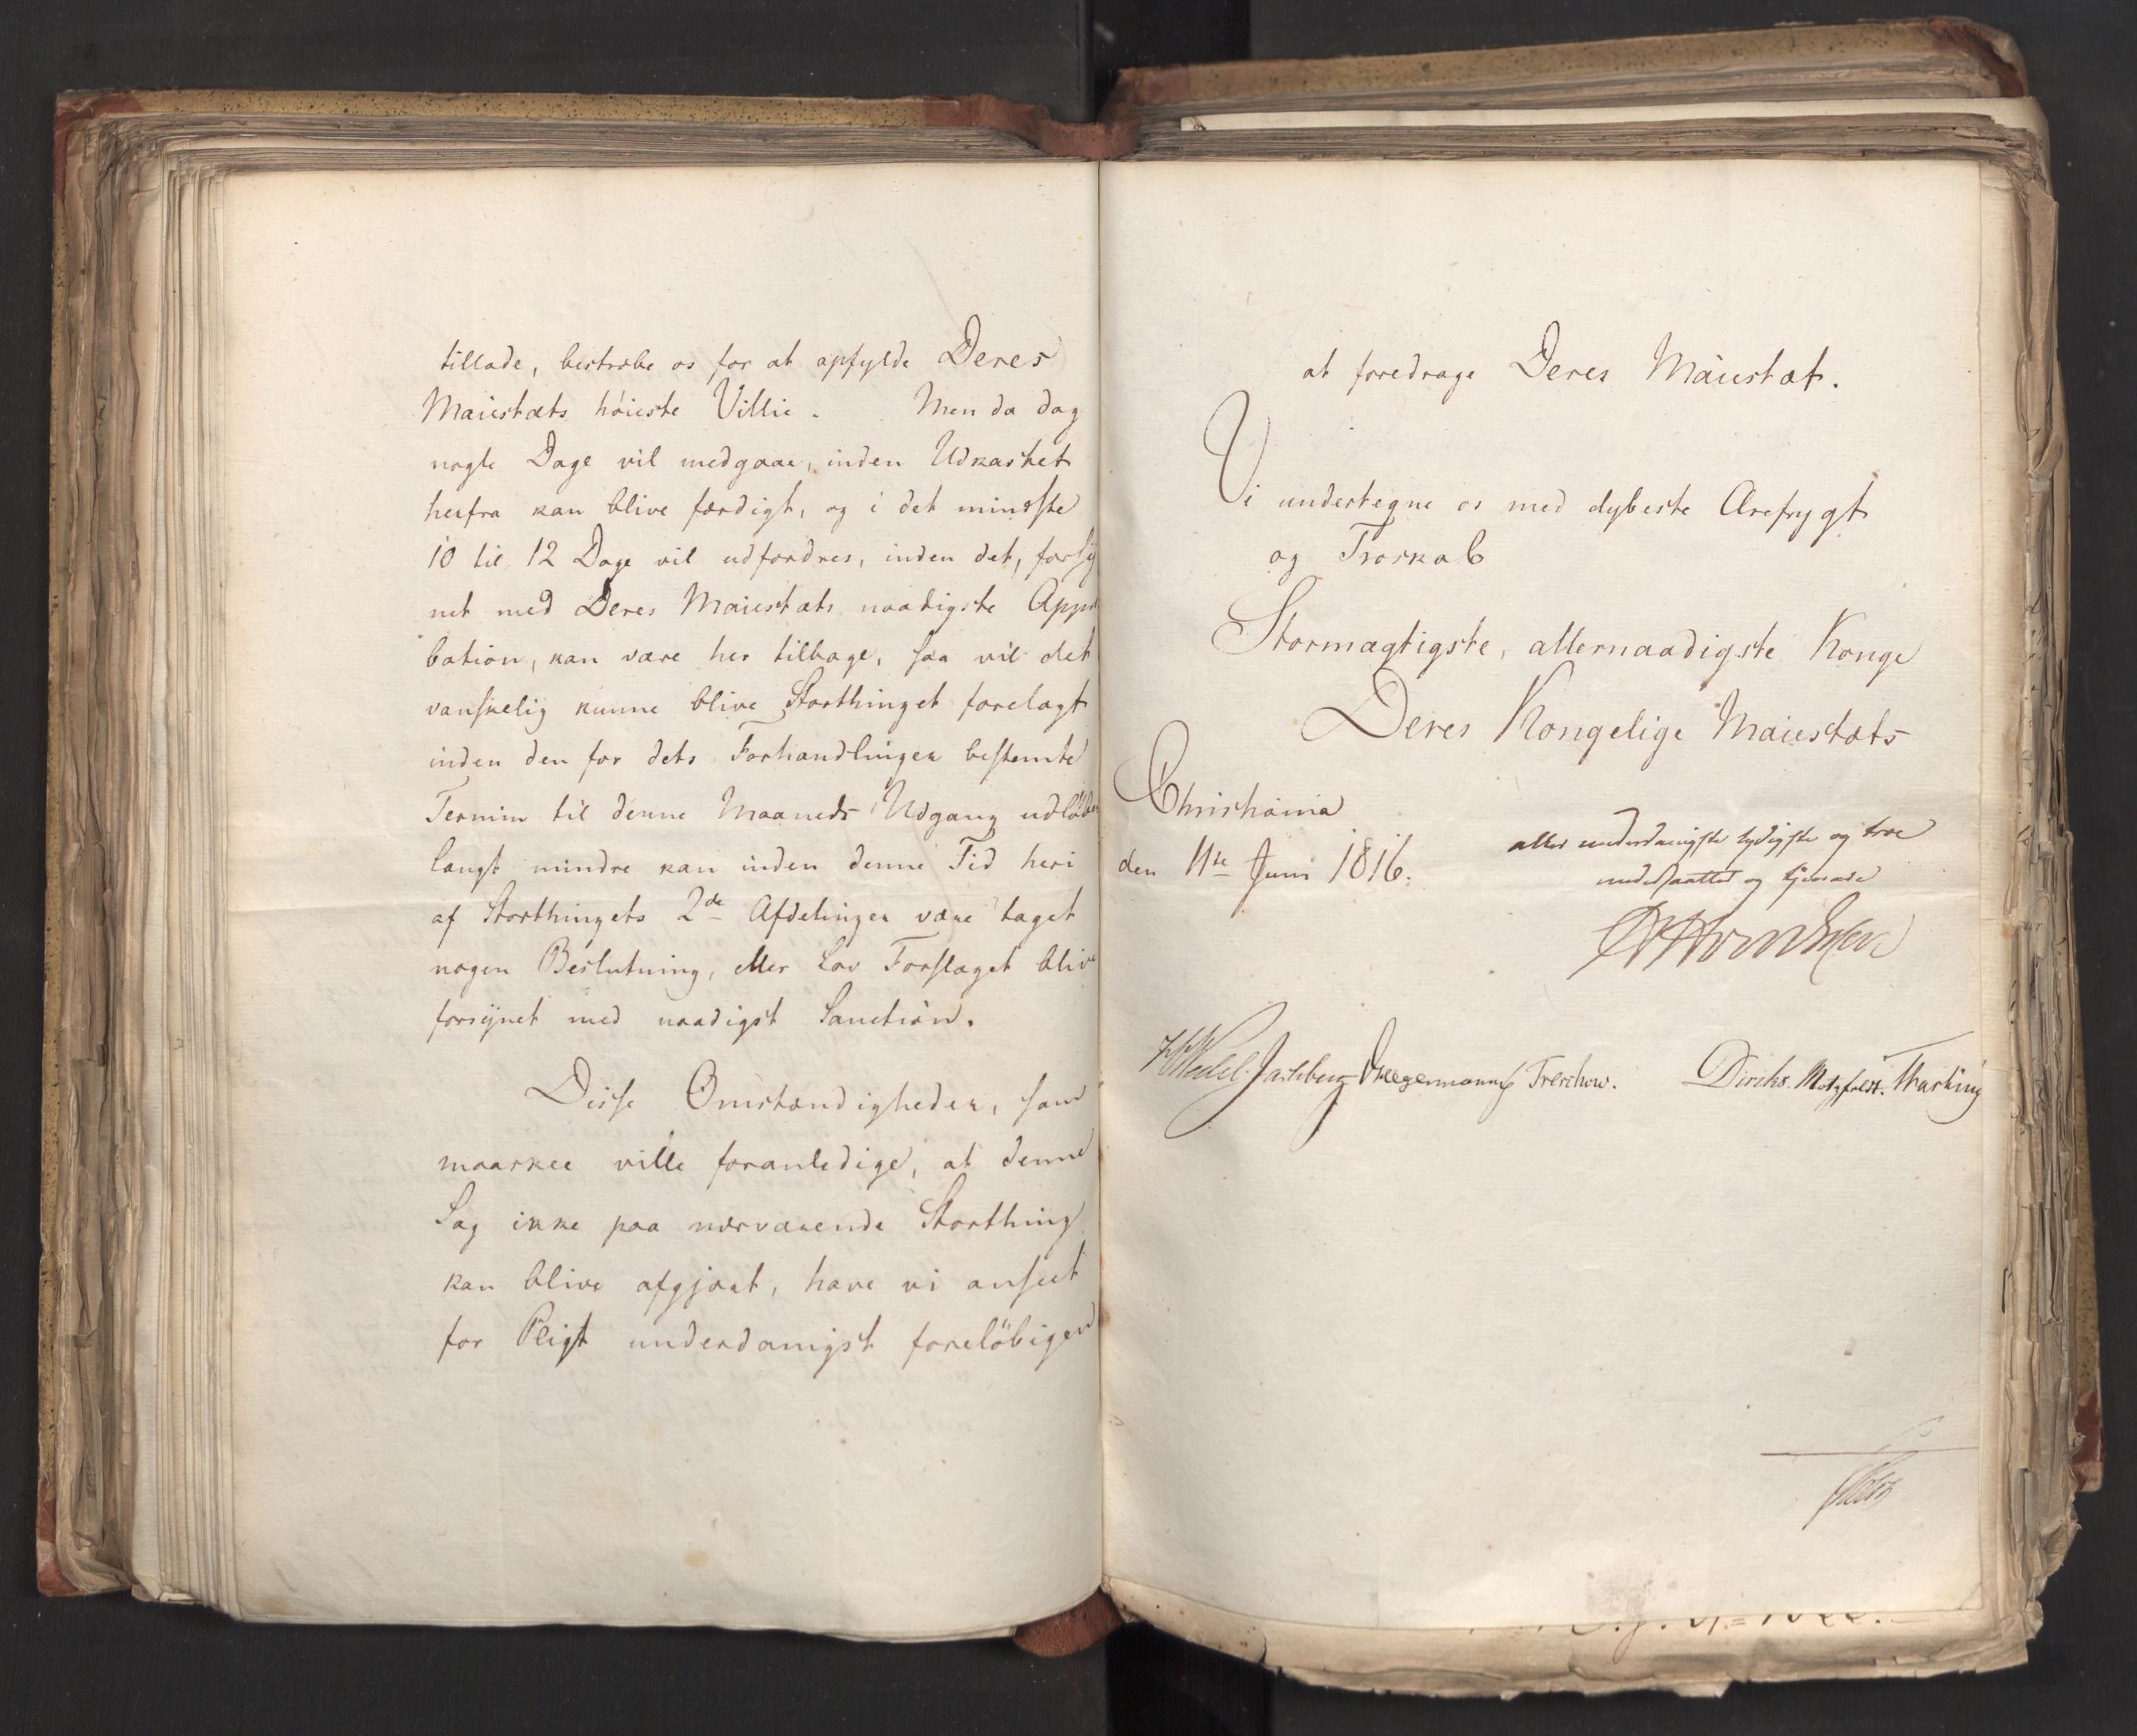 tillade, bestræbe os for at opfylde Deres
Maiestæts höieste Villie. Men da dog
nogle Dage vil medgaae, inden Udkastet
herfra kan blive færdigt, og i det mindste
10 til 12 Dage vil udfordres, inden det, forsÿ
net med Deres Maiestæts naadigste Appro
bation, kan være her tilbage, saa vil det
vanskelig kunne blive Storthinget forelagt
inden den for dets Forhandlinger bestemte
Termin til denne Maaneds Udgang udlöber
langt mindre kan inden denne Tid heri
af Storthingets 2de Afdelinger være taget
nogen Beslutning, eller Lov Forslaget blive
forsÿnet med naadigst Sanction.
Disse Omstændigheder, som
maaskee ville foranledige, at denne
Sag ikke paa nærværende Storthing
kan blive afgjort, have vi anseet
for Pligt underdanigst foreløbigen
at foredrage Deres Maiestæt.
Vi undertegne os med dybeste Ærefrygt
og Troskab
Stormægtigste, allernaadigste Konge
Deres Kongelige Maiestæts
Christiania
den 11te Juni 1816.
aller underdanigste lydigste og troe
undersaatter og tjenere
HWedel Jarlsberg Hegermann Treschow. Diriks. Motzfeldt. Thaning